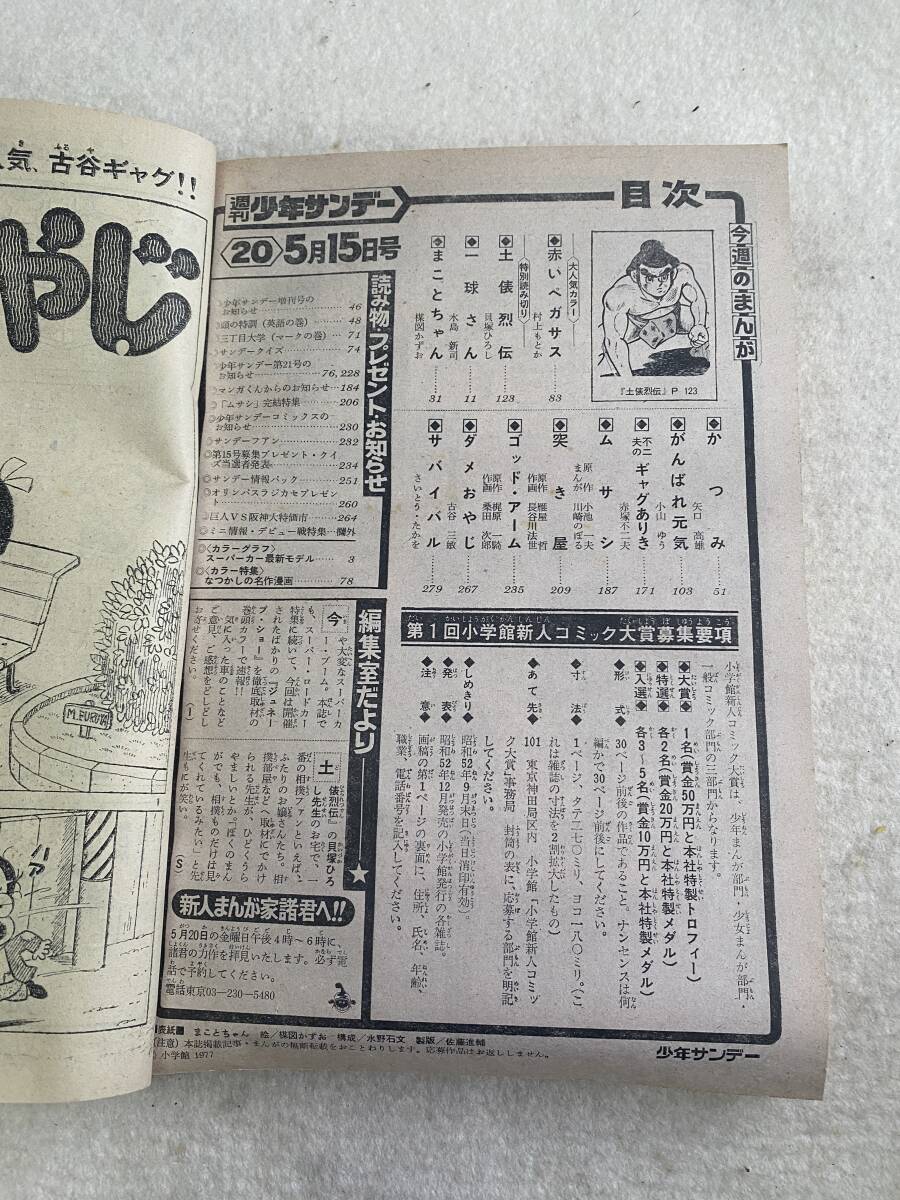 気、古谷ギャグ!!
やじ
M.FURUYA
ハア
目次
週刊少年サンデー
〈20〉5月15日号
今週のまんが
『土俵烈伝』P 123
大人気カラー
◆赤いペガサス 村上もとか 83
特別読み切り
◆土俵烈伝 貝塚ひろし 123
◆一球さん 水島新司 11
◆まことちゃん 楳図かずお 31
◆かつみ 矢口高雄 51
◆がんばれ元気 小山ゆう 103
◆不二夫のギャグありき 赤塚不二夫 171
◆ムサシ 原作 小池一夫 まんが 川崎のぼる 187
◆突き屋 原作 雁屋哲 作画 長谷川法世 209
◆ゴッド・アーム 原作 梶原一騎 作画 桑田次郎 235
◆ダメおやじ 古谷三敏 267
◆サバイバル さいとう・たかを 279
読み物・プレゼント・お知らせ
◎少年サンデー増刊号の
お知らせ 46
◎頭の特訓(英語の巻) 48
◎三丁目大学(マークの巻) 71
◎サンデークイズ 74
◎少年サンデー第21号の
お知らせ 76,228
◎マンガくんからのお知らせ 184
◎「ムサシ」完結特集 206
◎少年サンデーコミックスの
お知らせ 230
◎サンデーフアン 232
◎第15号募集プレゼント・クイ
ズ当選者発表 234
◎サンデー情報パック 251
◎オリンパスラジカセプレゼン
ト 260
◎巨人VS阪神大特価市 264
◎ミニ情報・デビュー戦特集 欄外
◎〈カラーグラフ〉
スーパーカー最新モデル 3
◎〈カラー特集〉
なつかしの名作漫画 78
第1回小学館新人コミック大賞募集要項
小学館新人コミック大賞は、少年まんが部門・少女まんが部門・
一般コミック部門の三部門からなります。
◆大賞◆ 1名(賞金50万円と本社特製トロフィー)
◆特選◆ 各2名(賞金20万円と本社特製メダル)
◆入選◆ 各3〜5名(賞金10万円と本社特製メダル)
◆形式◆ 30ページ前後の作品であること。ナンセンスは何
編かで30ページ前後にしてください。
◆寸法◆ 1ページ、タテ二七〇ミリ、ヨコ一八〇ミリ。(こ
れは雑誌の寸法を2割拡大したもの)
◆あて先◆ 101 東京神田局区内 小学館「小学館新人コミッ
ク大賞」事務局 封筒の表に、応募する部門を明記
してください。
◆しめきり◆ 昭和52年9月末日(当日消印有効)。
◆発表◆ 昭和52年12月発売の小学館発行の各雑誌。
◆注意◆ 画稿の第1ページの裏面に、住所、氏名、年齢、
職業、電話番号を記入してください。
編集室だより★
今や大変なスーパーカ
ー・ブーム。本誌で
も、スーパー・ロードカー
特集に続いて、今回は開催
されたばかりの『ジュネー
ブ・ショー』を徹底取材の
巻頭カラーで速報!!
気に入った車のことなど
ご意見、ご感想をどしどし
お寄せください。 (I)
土俵烈伝』の貝塚ひろ
し先生のお宅で、一
番の相撲ファンといえば、
ふたりのお嬢さんたち。相
撲部屋など、取材にでかけ
られる先生が、ひどくうら
やましいとか。『ぼくのまん
がでも、相撲ものだけは見
てくれているみたい』と先
生もにが笑い。 (S)
新人まんが家諸君へ!!
5月20日の金曜日午後4時〜6時に、
諸君の力作を拝見いたします。必ず電
話で予約してください。
電話東京03—230—5480
■表紙■ まことちゃん 絵/楳図かずお 構成/水野石文 製版/佐藤進輔
(注意) 本誌掲載記事・まんがの無断転載をおことわりします。応募作品はお返ししません。
小学館 1977
少年サンデー